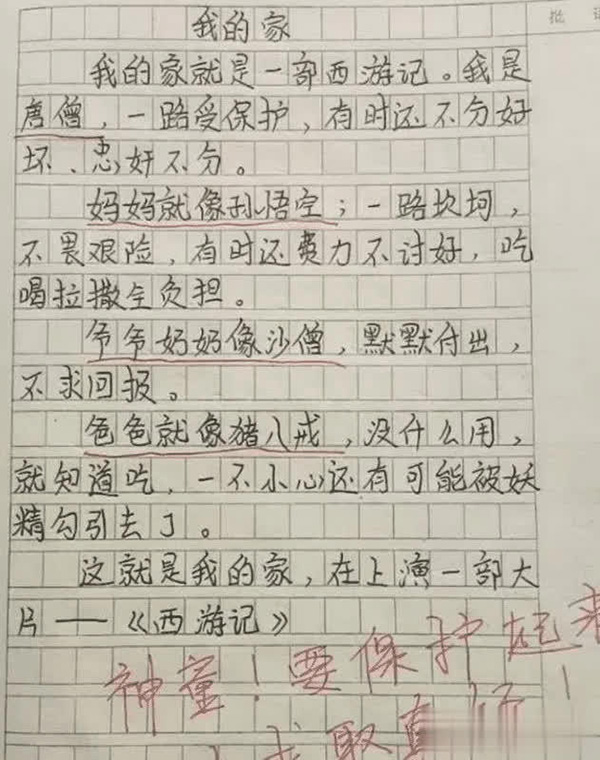 批
我的家
我的家就是一部西游记。我是
唐僧，一路受保护，有时还不分好
坏、忠奸不分。
妈妈就像孙悟空；一路坎坷，
不畏艰险，有时还费力不讨好，吃
喝拉撒全负担。
爷爷奶奶像沙僧，默默付出，
不求回报。
爸爸就像猪八戒，没什么用，
就知道吃，一不小心还有可能被妖
精勾引去了。
这就是我的家，在上演一部大
片——《西游记》
神童！要保护起来
取真